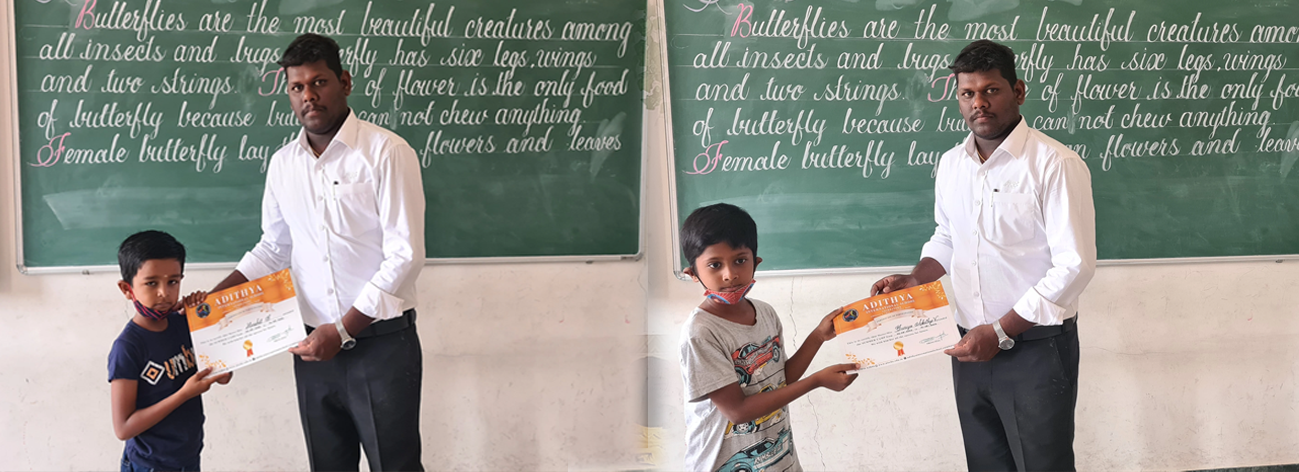 Butterflies are the most beautiful creatures among
all insects and bugs. rfly has six legs, wings
and two strings. Th of flower is the only food
of butterfly because can not chew anything
Female butterfly lay flowers and leaves
ADITHYA
Butterflies are the most beautiful creatures amon
all insects and bugs rfly has six legs, wings
and two strings. Th of flower is the only foo
of butterfly because bu can not chew anything
Female butterfly lay an flowers and leaves
ADITHYA